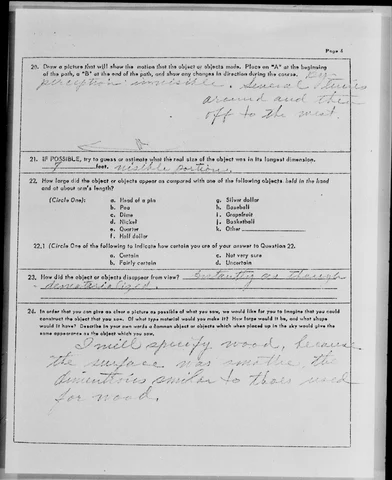 Page 4
20. Draw a picture that will show the motion that the object or objects made. Place an "A" at the beginning
of the path, a "B" at the end of the path, and show any changes in direction during the course. By
perception: invisible. Several times
around and then
off to the west.
21. IF POSSIBLE, try to guess or estimate what the real size of the object was in its longest dimension.
7 feet. visible portions
22. How large did the object or objects appear as compared with one of the following objects held in the hand
and at about arm's length?
(Circle One):
a. Head of a pin
g. Silver dollar
b. Pea
h. Baseball
c. Dime
i. Grapefruit
d. Nickel
j. Basketball
e. Quarter
k. Other
f. Half dollar
22.1 (Circle One of the following to indicate how certain you are of your answer to Question 22.
a. Certain
c. Not very sure
b. Fairly certain
d. Uncertain
23. How did the object or objects disappear from view? Instantly as though
dematerialized.
24. In order that you can give as clear a picture as possible of what you saw, we would like for you to imagine that you could
construct the object that you saw. Of what type material would you make it? How large would it be, and what shape
would it have? Describe in your own words a common object or objects which when placed up in the sky would give the
same appearance as the object which you saw.
I will specify wood, because
the surface was smooth, the
dimentions similar to those used
for wood.